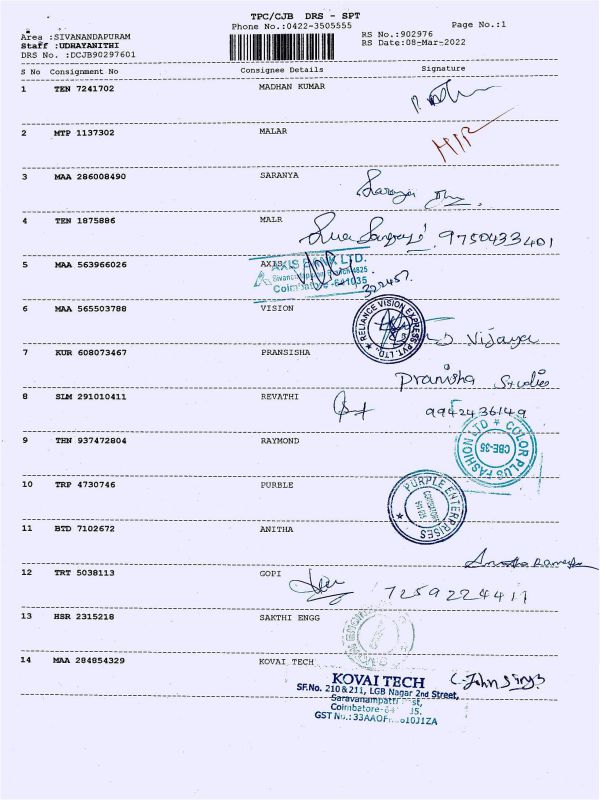 TPC/CJB DRS - SPT
Phone No.:0422-3505555 Page No.:1
Area :SIVANANDAPURAM RS No.:902976
Staff :UDHAYANITHI RS Date:08-Mar-2022
DRS No. :DCJB90297601
S No Consignment No Consignee Details Signature
1 TEN 7241702 MADHAN KUMAR
2 MTP 1137302 MALAR
3 MAA 286008490 SARANYA
Saranya
4 TEN 1875886 MALR
9750433401
5 MAA 563966026 AXIS
AXIS BANK LTD.
Coimbatore -641035
322457.
6 MAA 565503788 VISION
RELIANCE VISION EXPRESS PVT. LTD.
Vijaya
7 KUR 608073467 PRANSISHA
Pranisha Studios
8 SLM 291010411 REVATHI
9942436149
9 THN 937472804 RAYMOND
COLOR PLUS FASHION LTD
CBE-35
10 TRP 4730746 PURBLE
PURPLE ENTERPRISES
11 BTD 7102672 ANITHA
12 TRT 5038113 GOPI
13 HSR 2315218 SAKTHI ENGG
14 MAA 284854329 KOVAI TECH
KOVAI TECH
SF.No. 210 & 211, LGB Nagar 2nd Street,
Saravanampatti
Coimbatore-
GST No.:
C. John